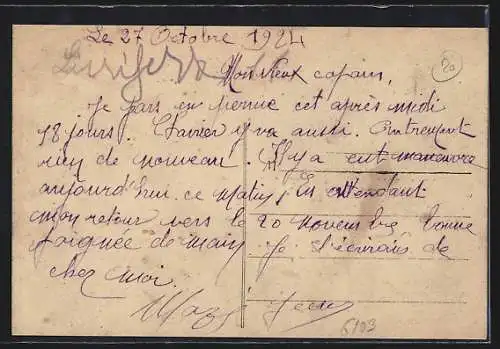 Le 27 Octobre 1924
20
Mon vieux copain,
Je pars en permie cet après midi
18 jours. Xavier y va aussi. Autrement
rien de nouveau. Il y a eut manœuvre
aujourd'hui ce matin, En attendant
mon retour vers le 20 Novembre bonne
poignée de main Je t'écrirais de
chez moi.
6103